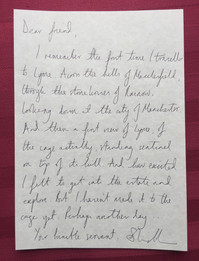 Dear friend,
I remember the first time I travelled
to Lyme. From the hills of Macclesfield,
through the stone towns of
Looking down at the city of Manchester
And then a first view of Lyme. Of
the cage actually, standing sentinel
on top of its hill. And how excited
I felt to get into the estate and
explore. But I haven't made it to the
cage yet. Perhaps another day.
Your humble servant,